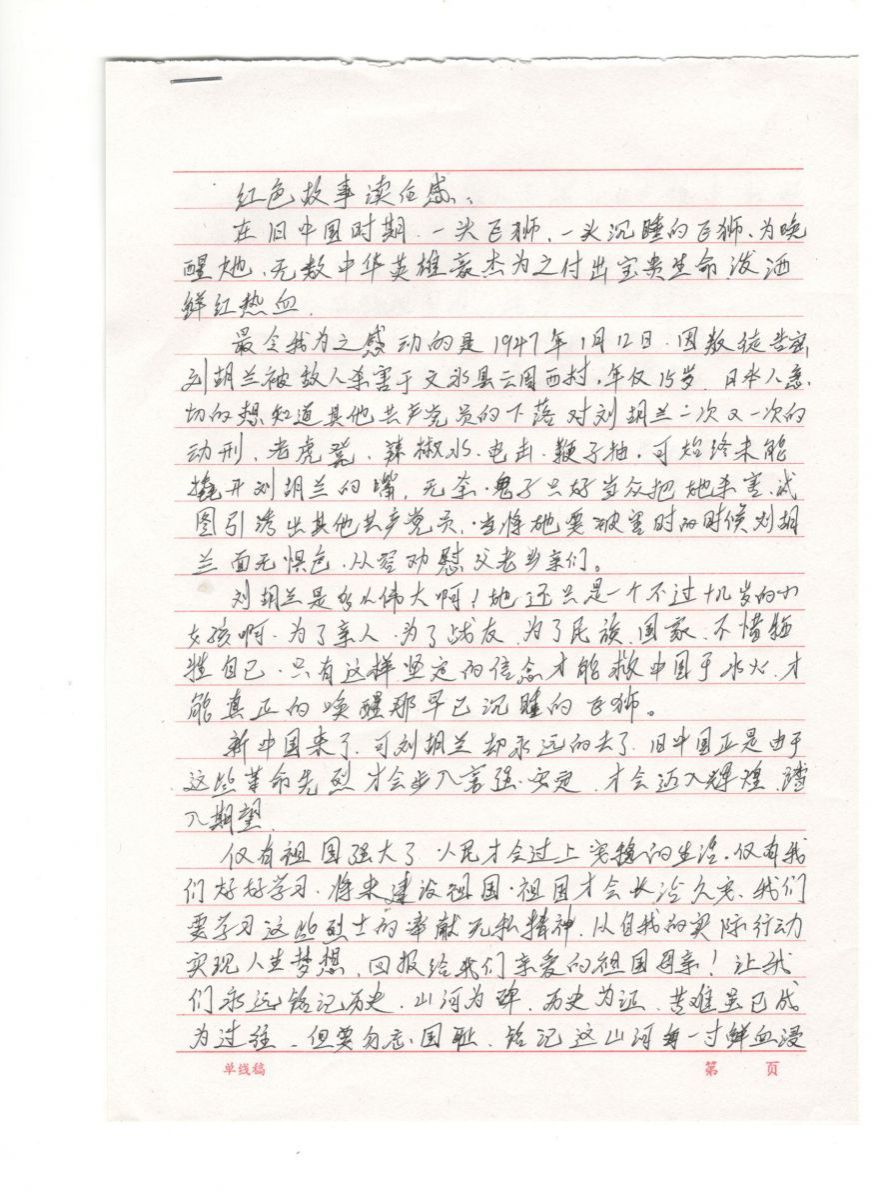 红色故事读后感:
在旧中国时期.一头飞狮、一头沉睡的飞狮、为唤
醒她、无数中华英雄豪杰为之付出宝贵生命、泼洒
鲜红热血.
最令我为之感动的是1947年1月12日.因叛徒告密,
刘胡兰被敌人杀害于文水县云周西村,年仅15岁.日本人急
切的想知道其他共产党员的下落对刘胡兰一次又一次的
动刑、老虎凳、辣椒水、电击、鞭子抽,可始终未能
撬开刘胡兰的嘴,无奈.鬼子只好当众把她杀害,试
图引诱出其他共产党员,当将她要被害时的时候刘胡
兰面无惧色、从容劝慰父老乡亲们。
刘胡兰是多么伟大啊!她还只是一个不过十几岁的小
女孩啊.为了亲人、为了战友、为了民族、国家、不惜牺
牲自己.只有这样坚定的信念才能救中国于水火、才
能真正的唤醒那早已沉睡的飞狮。
新中国来了、可刘胡兰却永远的去了.旧中国正是由于
这些革命先烈才会步入富强.安定、才会迈入辉煌、踏
入期望.
仅有祖国强大了 人民才会过上安稳的生活.仅有我
们好好学习、将来建设祖国.祖国才会长治久安、我们
要学习这些烈士的奉献无私精神、从自我的实际行动
实现人生梦想、回报给我们亲爱的祖国母亲!让我
们永远铭记历史、山河为碑、历史为证、苦难虽已成
为过往、但要勿忘.国耻、铭记这山河每一寸鲜血浸
单线稿 第 页